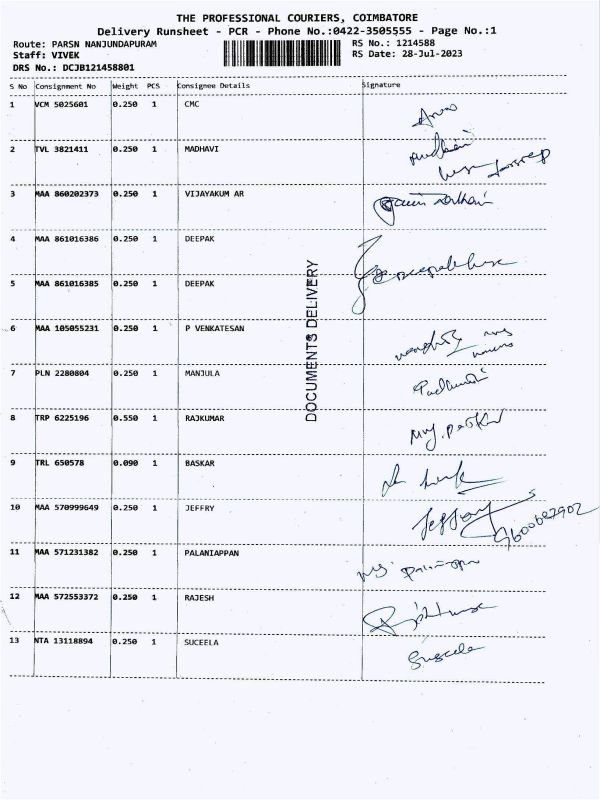 THE PROFESSIONAL COURIERS, COIMBATORE
Delivery Runsheet - PCR - Phone No.:0422-3505555 - Page No.:1
Route: PARSN NANJUNDAPURAM
RS No.: 1214588
Staff: VIVEK
RS Date: 28-Jul-2023
DRS No.: DCJB121458801
S No Consignment No Weight PCS Consignee Details Signature
1 VCM 5025601 0.250 1 CMC
2 TVL 3821411 0.250 1 MADHAVI
3 MAA 860202373 0.250 1 VIJAYAKUM AR
4 MAA 861016386 0.250 1 DEEPAK
5 MAA 861016385 0.250 1 DEEPAK
6 MAA 105055231 0.250 1 P VENKATESAN
7 PLN 2280804 0.250 1 MANJULA
8 TRP 6225196 0.550 1 RAJKUMAR
9 TRL 650578 0.090 1 BASKAR
10 MAA 570999649 0.250 1 JEFFRY Jeffery
11 MAA 571231382 0.250 1 PALANIAPPAN
12 MAA 572553372 0.250 1 RAJESH
13 NTA 13118894 0.250 1 SUCEELA Suscela
DOCUMENTS DELIVERY